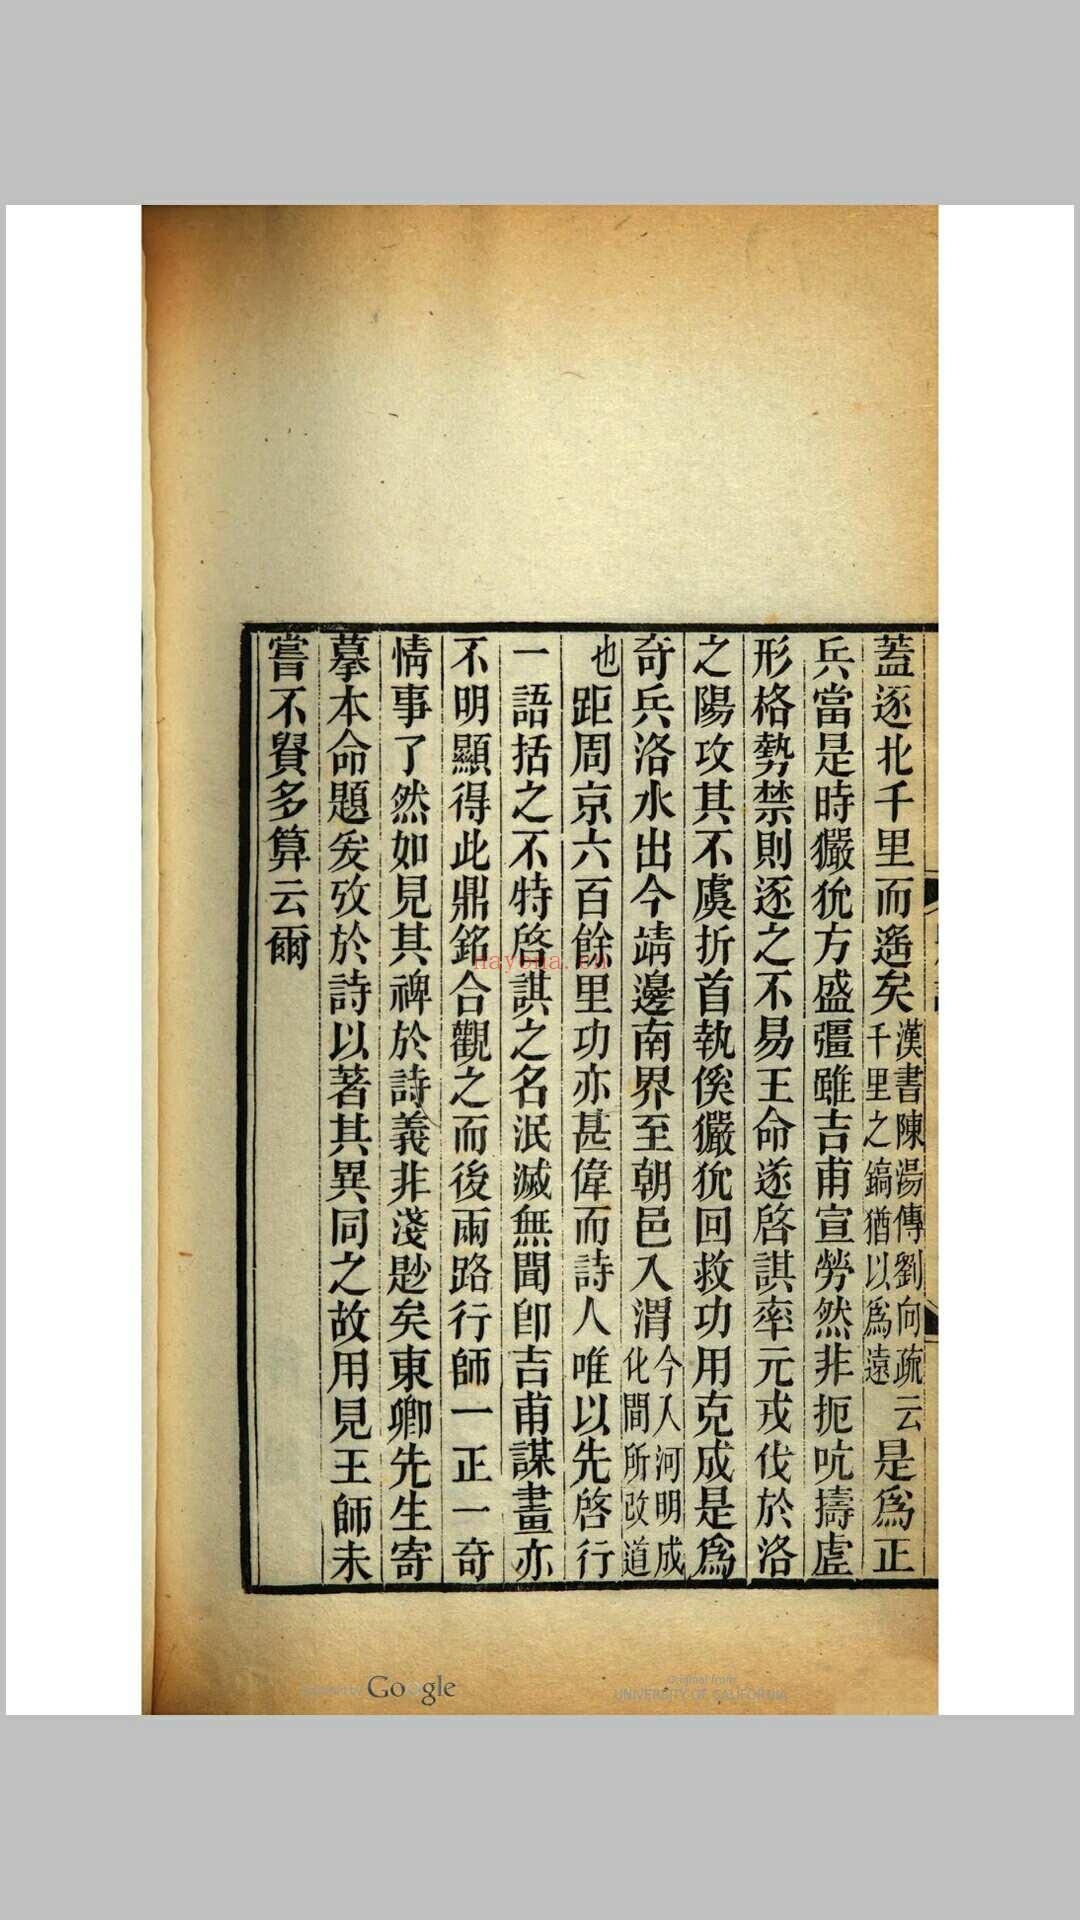 蓋逐北千里而遙矣漢書陳湯傳劉向疏云千里之鎬猶以爲遠是爲正
兵當是時玁狁方盛彊雖吉甫宣勞然非扼吭擣虛
形格勢禁則逐之不易王命遂啓諆率元戎伐於洛
之陽攻其不虞折首執傒玁狁回救功用克成是爲
奇兵洛水出今靖邊南界至朝邑入渭今入河明成化間所改道
也距周京六百餘里功亦甚偉而詩人唯以先啓行
一語括之不特啓諆之名泯滅無聞卽吉甫謀畫亦
不明顯得此鼎銘合觀之而後兩路行師一正一奇
情事了然如見其裨於詩義非淺尟矣東卿先生寄
摹本命題爰攷於詩以著其異同之故用見王師未
嘗不貴多算云爾
nayona.cn
Google
Original from
UNIVERSITY OF CALIFORNIA